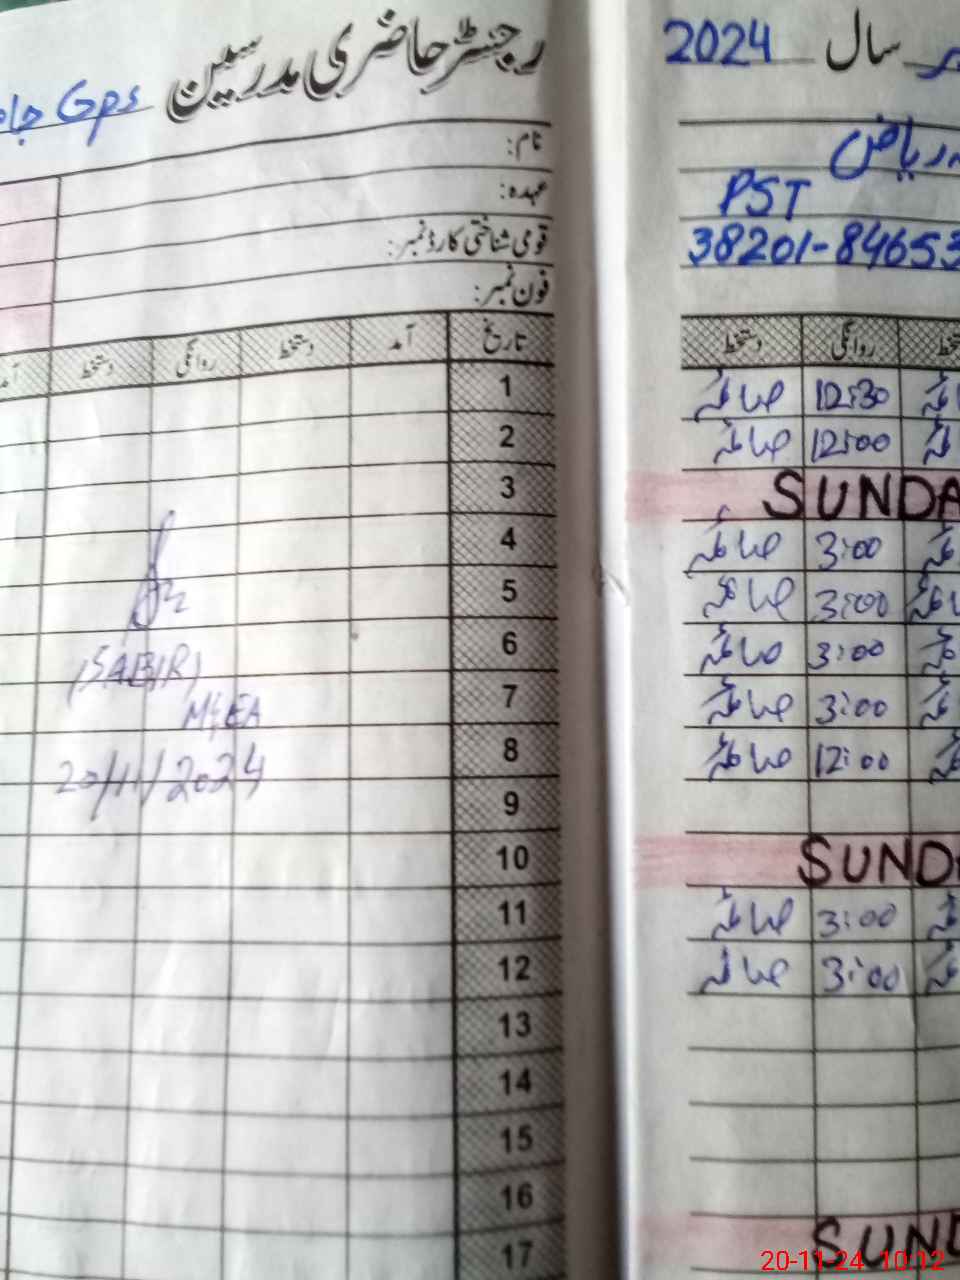 رجسٹر حاضری مدرسین
Gps
نام:
عہدہ:
قومی شناختی کارڈ نمبر:
فون نمبر:
تاریخ آمد دستخط روانگی دستخط
1
2
3
4
5
6
7
8
9
10
11
12
13
14
15
16
17
(SABIR)
20/11/2024
سال 2024
ریاض
PST
38201-84653
روانگی دستخط
صائمہ 12:30
صائمہ 12:00
SUNDA
صائمہ 3:00
صائمہ 3:00
صائمہ 3:00
صائمہ 3:00
صائمہ 12:00
SUND
صائمہ 3:00
صائمہ 3:00
SUND
20-11-24 10:12